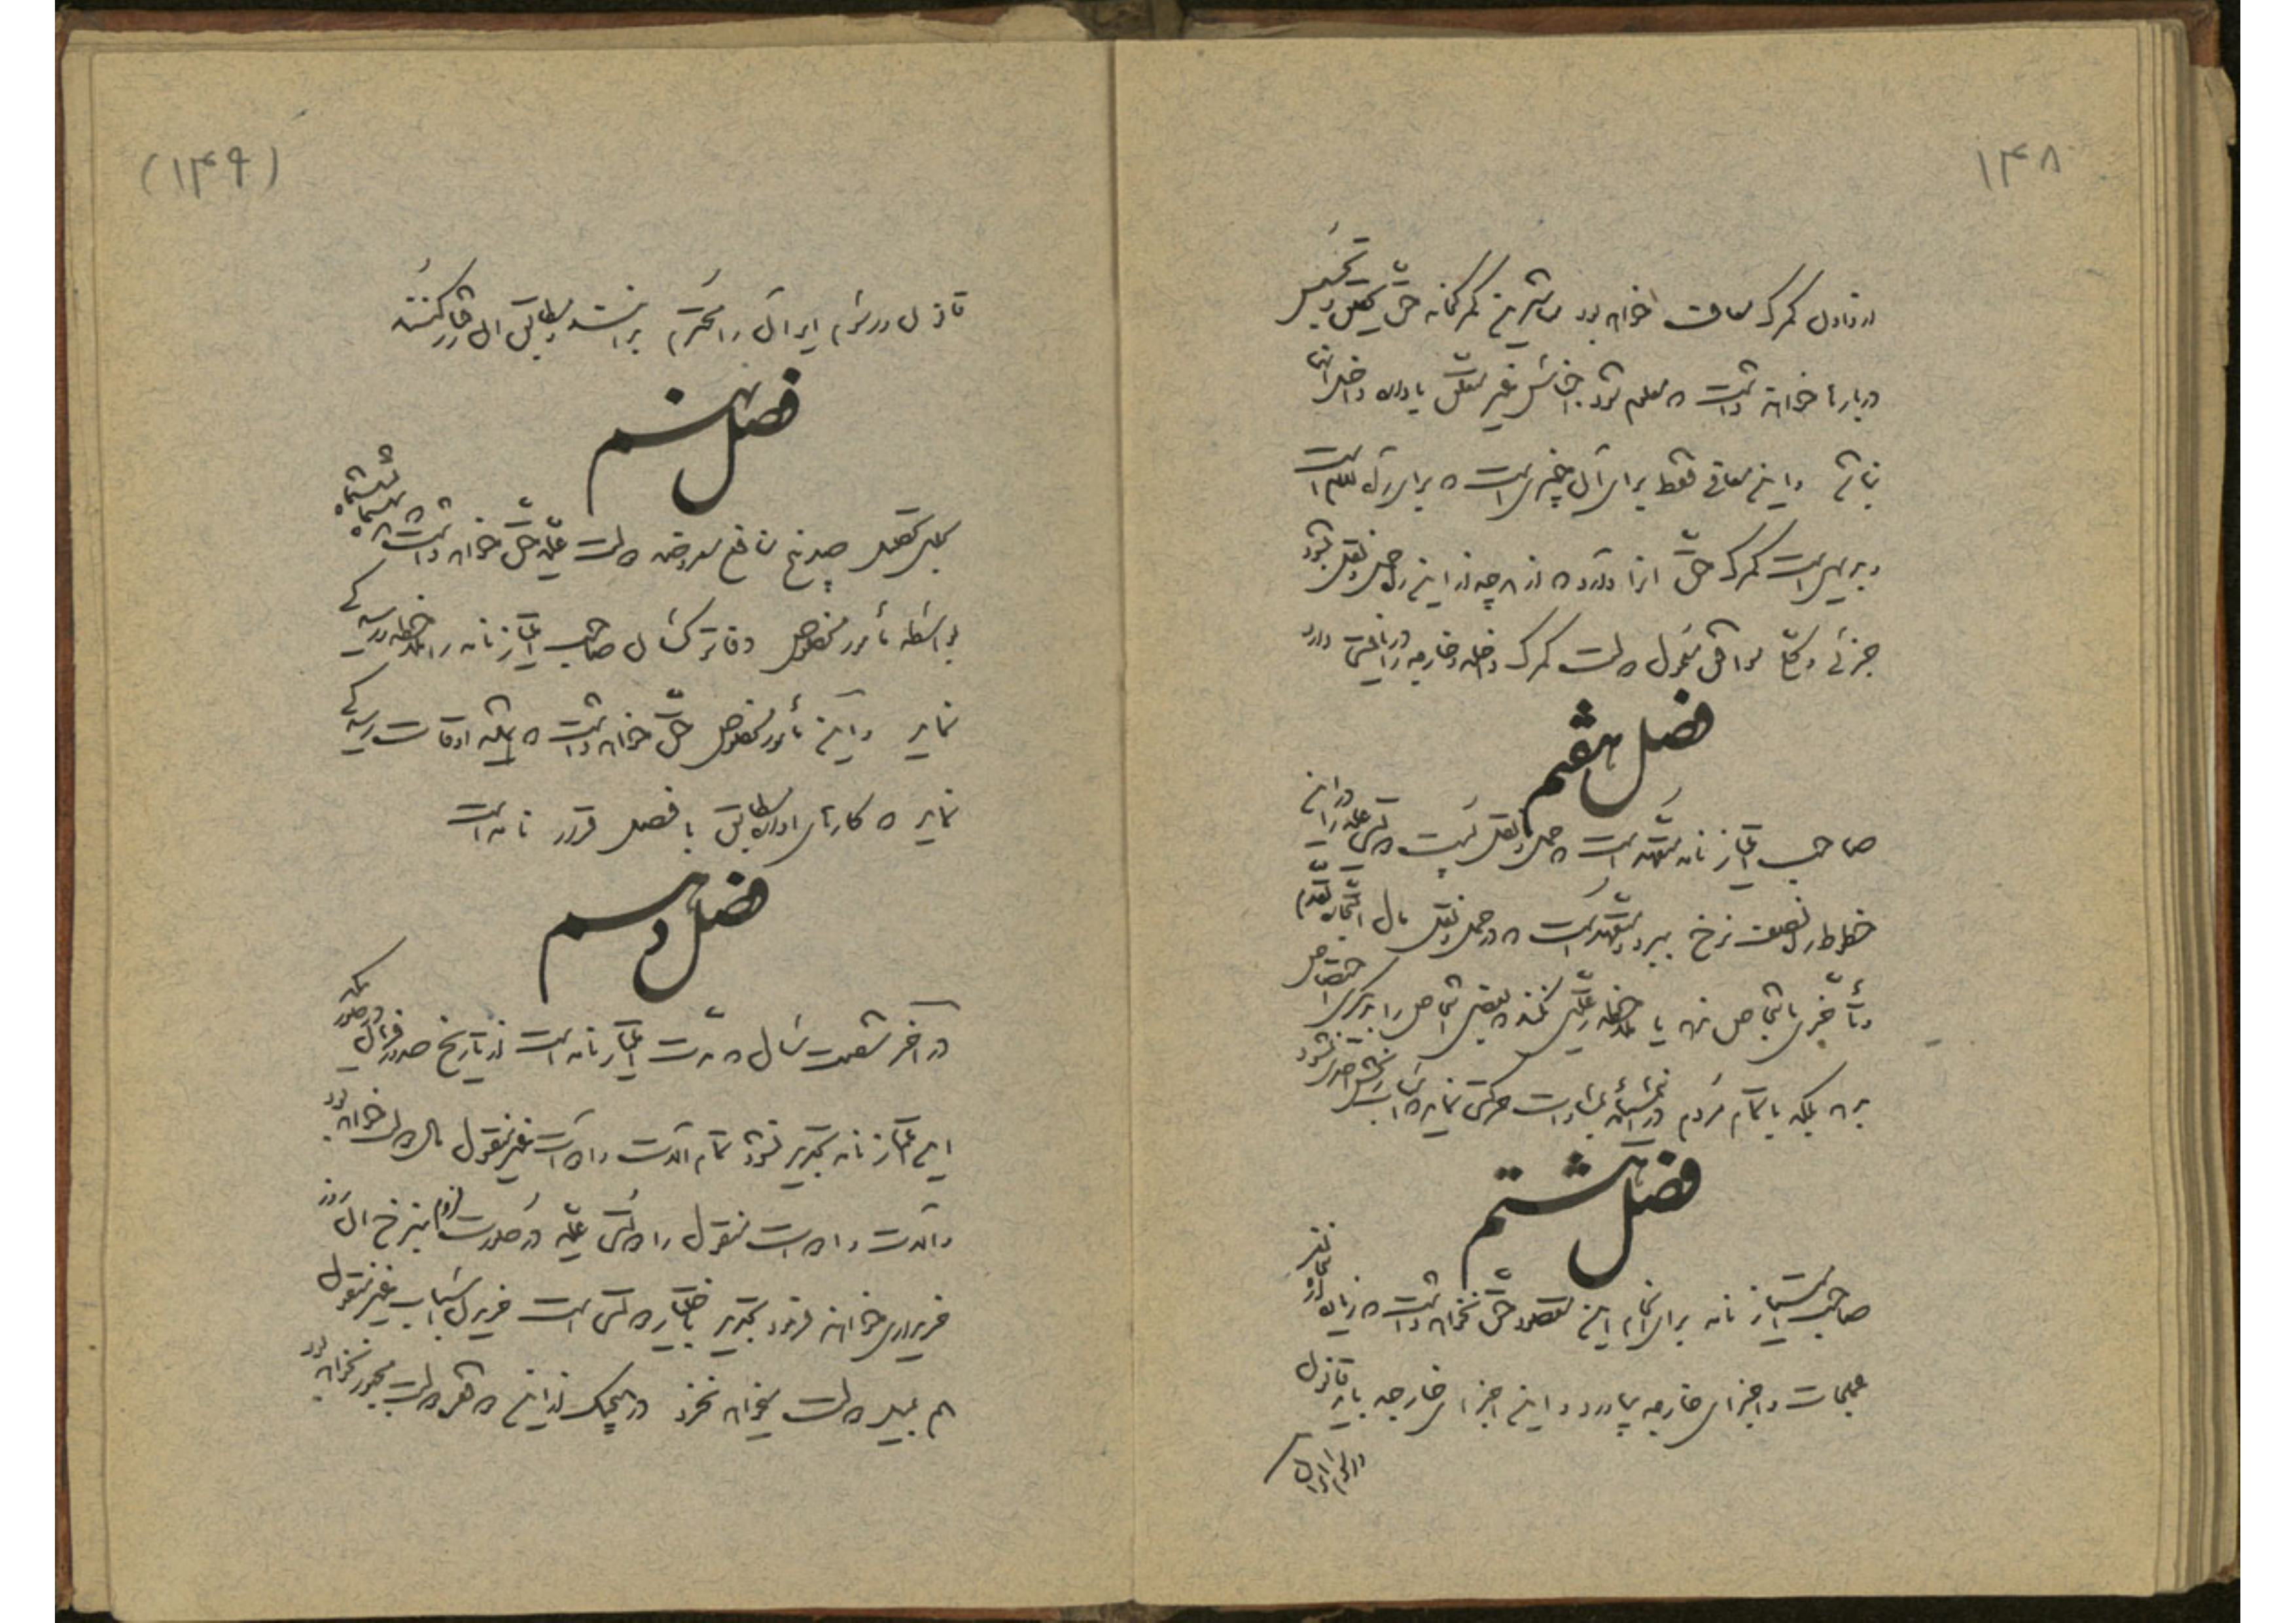 ۱۴۸
از دادن گمرک معاف خواهد بود مباشرین گمرکخانه حق تفتیش و تجسس
درباره خواهند داشت که معلوم شود اجناس غیر متعلق باداره داخل آنها
نباشد و این معافی فقط برای آن چیزی است که برای راه لازم است
و بدیهی است گمرک حق آنرا دارد که از هر چه از این راه حمل و نقل شود
جزئی و کلی موافق معمول دولت گمرک داخله و خارجه را دریافت دارد
فصل هفتم
صاحب امتیاز نامه متعهد است که حمل و نقل پست دولتی علیه را در این
خطوط راه نصف نرخ ببرد و متعهد است که در حمل و نقل مال التجاره تقدم
و تأخری باشخاص ندهد یا ملاحظه رعیتی نکند که بعضی اشخاص را بدیگری اختصاص
بدهد بلکه با تمام مردم در نهایت مساوات حرکتی نماید که اسباب رنجش احدی نشود
فصل هشتم
صاحب امتیاز نامه برای انجام این مقصود حق نخواهد داشت که زیاده از
عملجات و اجزای خارجه بیاورد و این اجزای خارجه باید قانون
(۱۴۹)
قانون و رسوم ایران را محترم بدانند و مطابق آن رفتار کنند
فصل نهم
برای تحصیل صدی منافع معروضه دولت علیه حق خواهد داشت که
بواسطه مأمور مخصوص دفاتر کسان صاحب امتیاز نامه را ملاحظه و رسیدگی
نماید و این مأمور مخصوص حق خواهد داشت که همه اوقات رسیدگی
نماید که کارهای اداره مطابق با فصل قرار نامه است
فصل دهم
در آخر شصت سال که مدت امتیاز نامه است از تاریخ صدور فرمان در صورتیکه
این امتیاز نامه تجدید نشود تمام آلات و ادوات غیر منقول مال دولت خواهد بود
و آلات و ادوات منقول را دولت علیه در صورت لزوم بنرخ آن روز
خریداری خواهند فرمود تجدید باختیار دولت است خریدن اسباب غیر منقول
هم بمیل دولت میخواهد نخرد در هیچیک از این دو فقره دولت مجبور نخواهد بود